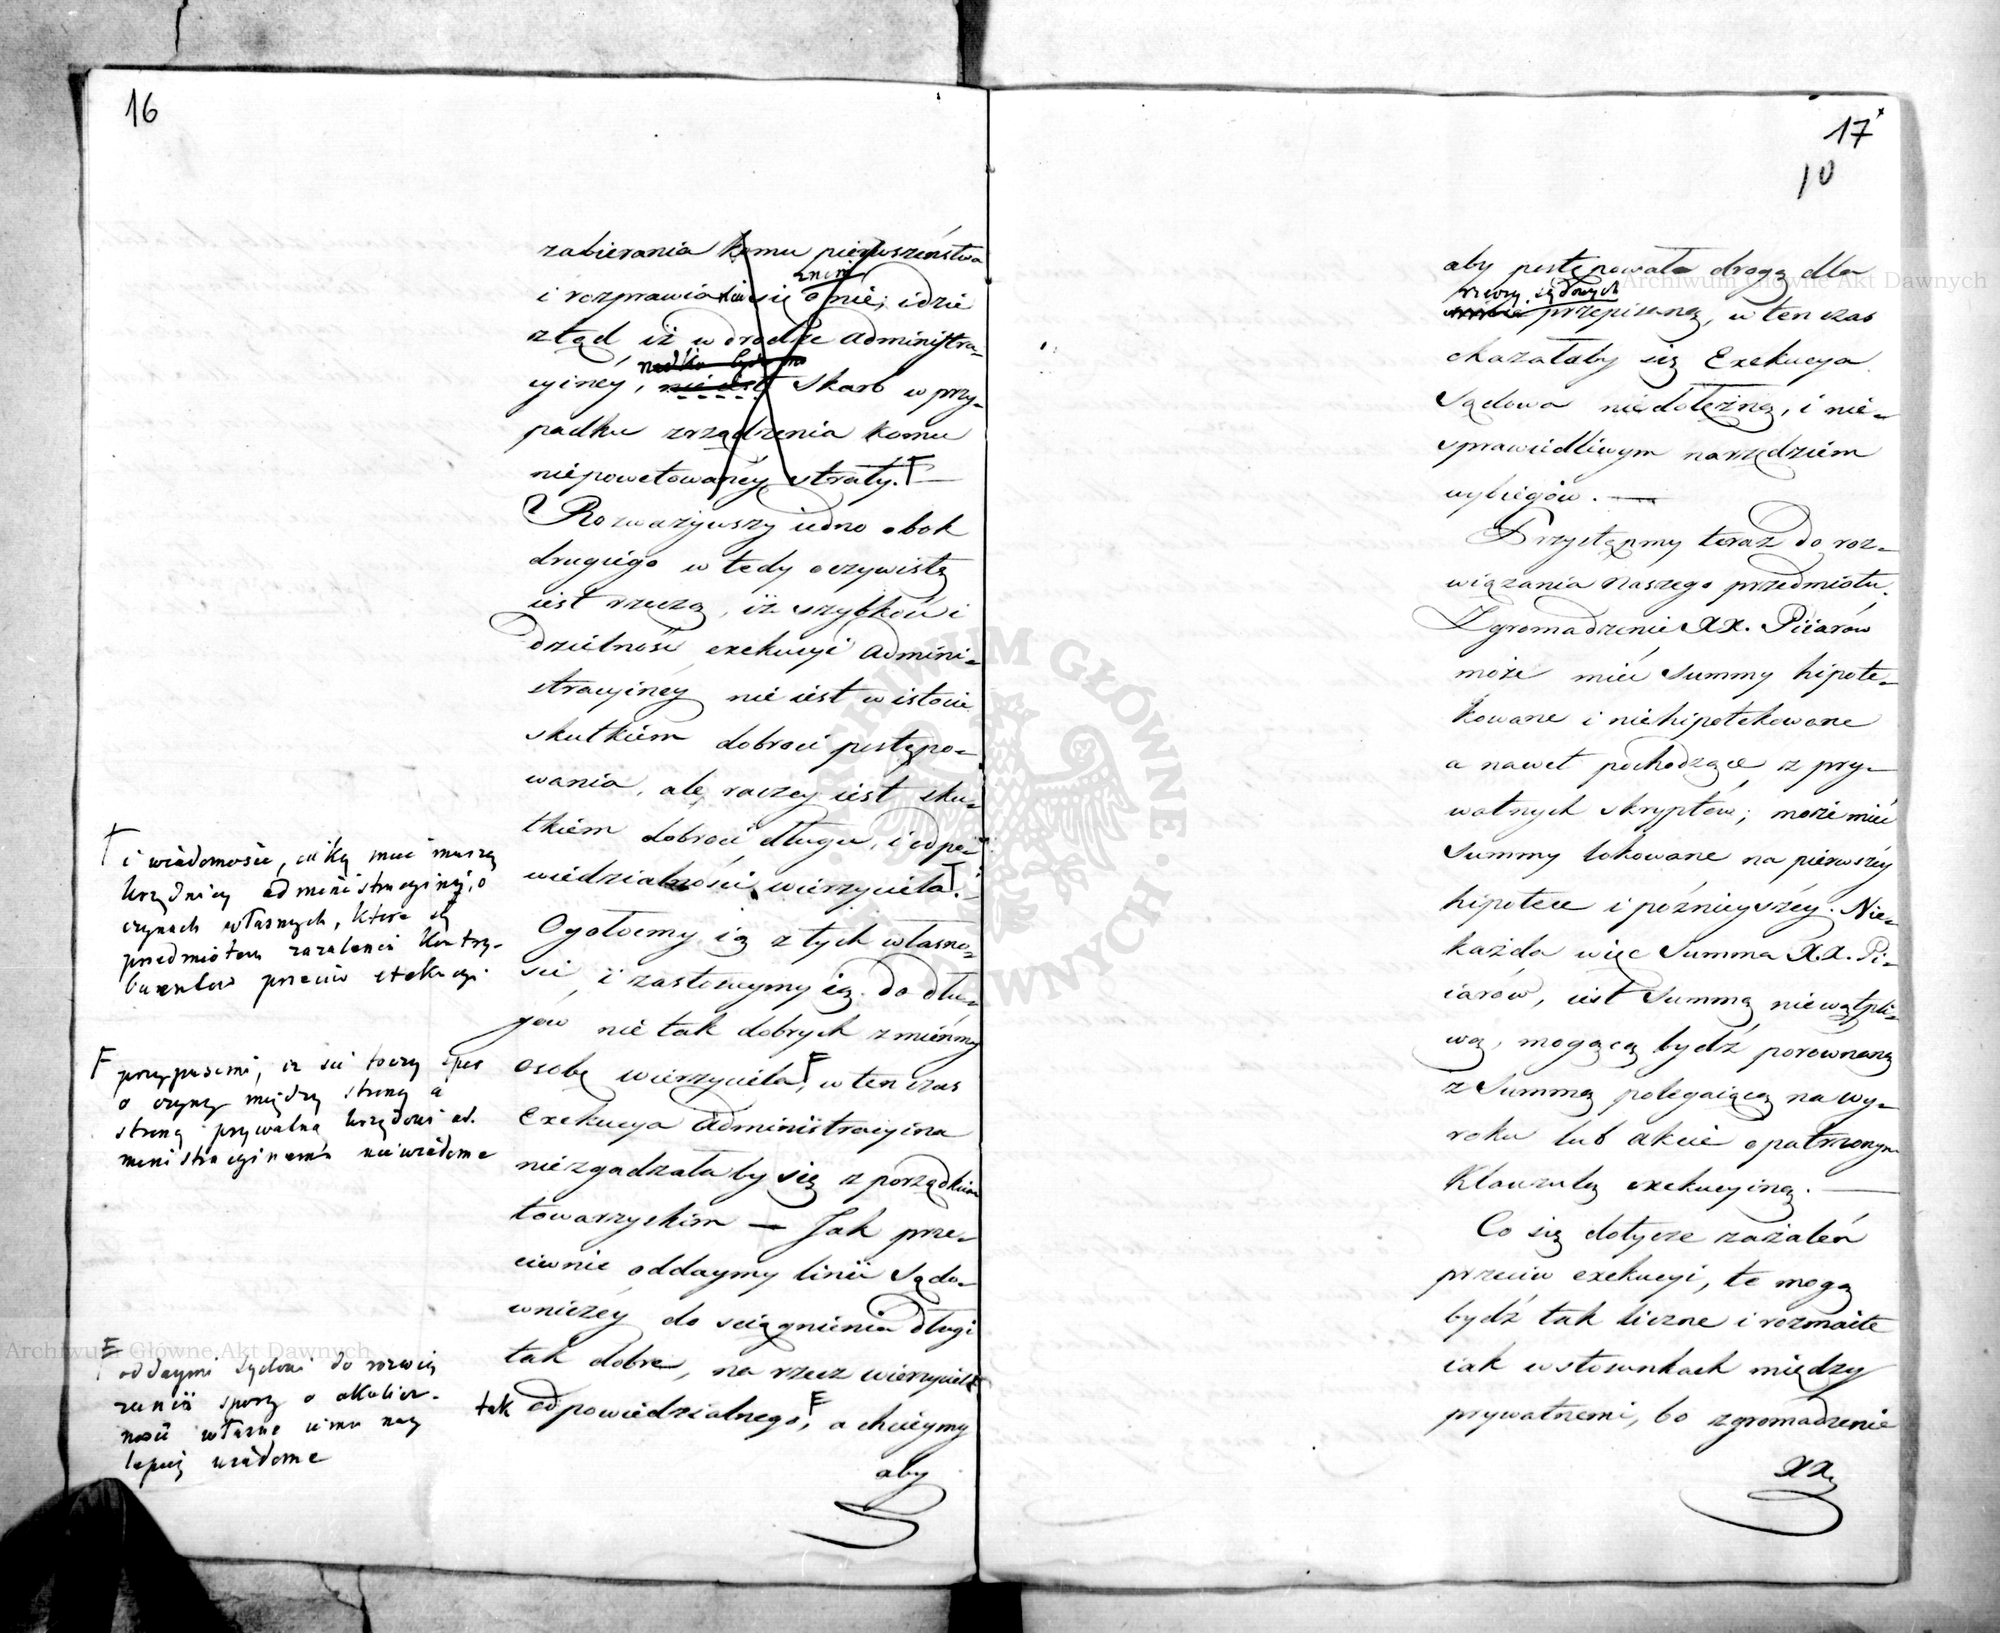 16
zabierania komu pierwszeństwa
i rozprawia się o nie; idzie
ztąd iż w drodze administra-
cyinéy, Skarb w przy-
padku zrządzenia komu
niepowetowanéy straty.
Rozważywszy iedno obok
drugiego wtedy oczywistą
iest rzeczą, iż szybkość i
dzielność exekucyi admini-
stracyinéy nie iest w istocie
skutkiem dobroci postępo-
wania, ale raczey iest sku-
tkiem dobroci długu, i odpo-
wiedzialności wierzyciela.
Ogołoćmy ią z tych własno-
ści, i zastosuymy ią do dłu-
gów nie tak dobrych zmieńmy
osobę wierzyciela, w ten czas
Exekucya Administracyina
niezgadzałaby się z porządkiem
towarzyskim — Jak prze-
ciwnie oddaymy linii Sądo-
wniczéy do ściągnienia długi
tak dobre, na rzecz wierzyciela
tak odpowiedzialnego, a chciéymy
aby
i wiadomości, iaką mieć muszą
Urzędnicy administracyini, o
czynach własnych, które są
przedmiotem zażaleń kontry-
buentów przeciw exekucyi
przypuśćmi, iż się toczy spór
o czyny między stroną a
stroną prywatną Urzędowi ad-
ministracyinemu niewiadome
oddaymi Sądowi do rozwią
zania spory o okolicz-
ności własne iemu nay
lepiéy wiadome
17
10
aby postępowała drogą dla
rzeczy sądowych
przepisaną, w ten czas
okazałaby się Exekucya
Sądowa niedołężną, i nie-
sprawiedliwym narzędziem
wybiegów. —
Przystąpmy teraz do roz-
wiązania naszego przedmiotu.
Zgromadzenie XX. Piiarów
może mieć Summy hipote-
kowane i niehipotekowane
a nawet pochodzące z pry-
watnych skryptów; może mieć
Summy lokowane na pierwszéy
hipotece i późnieyszéy. Nie-
każda więc Summa X.X. Pi-
iarów, iest Summą niewątpli-
wą, mogącą bydź porównaną
z Summą polegaiącą na wy-
roku lub akcie opatrzonym
Klauzulą exekucyiną. —
Co się dotycze zażaleń
przeciw exekucyi, te mogą
bydź tak liczne i rozmaite
iak w stosunkach między
prywatnemi, bo zgromadzenie
XX.